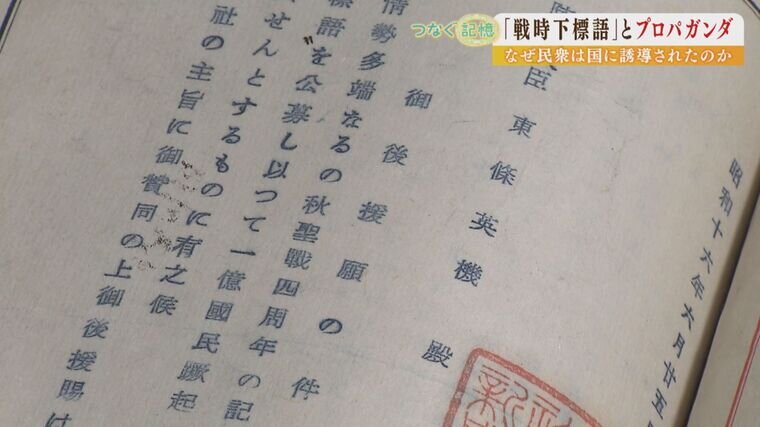 つなぐ記憶
「戦時下標語」とプロパガンダ
なぜ民衆は国に誘導されたのか
昭和十六年六月廿五
臣東條英機殿
御後援願の件
情勢多端なるの秋聖戦四周年の記
標語を公募し以つて一億國民蹶起
せんとするものに有之候
社の主旨に御賛同の上御後援賜は